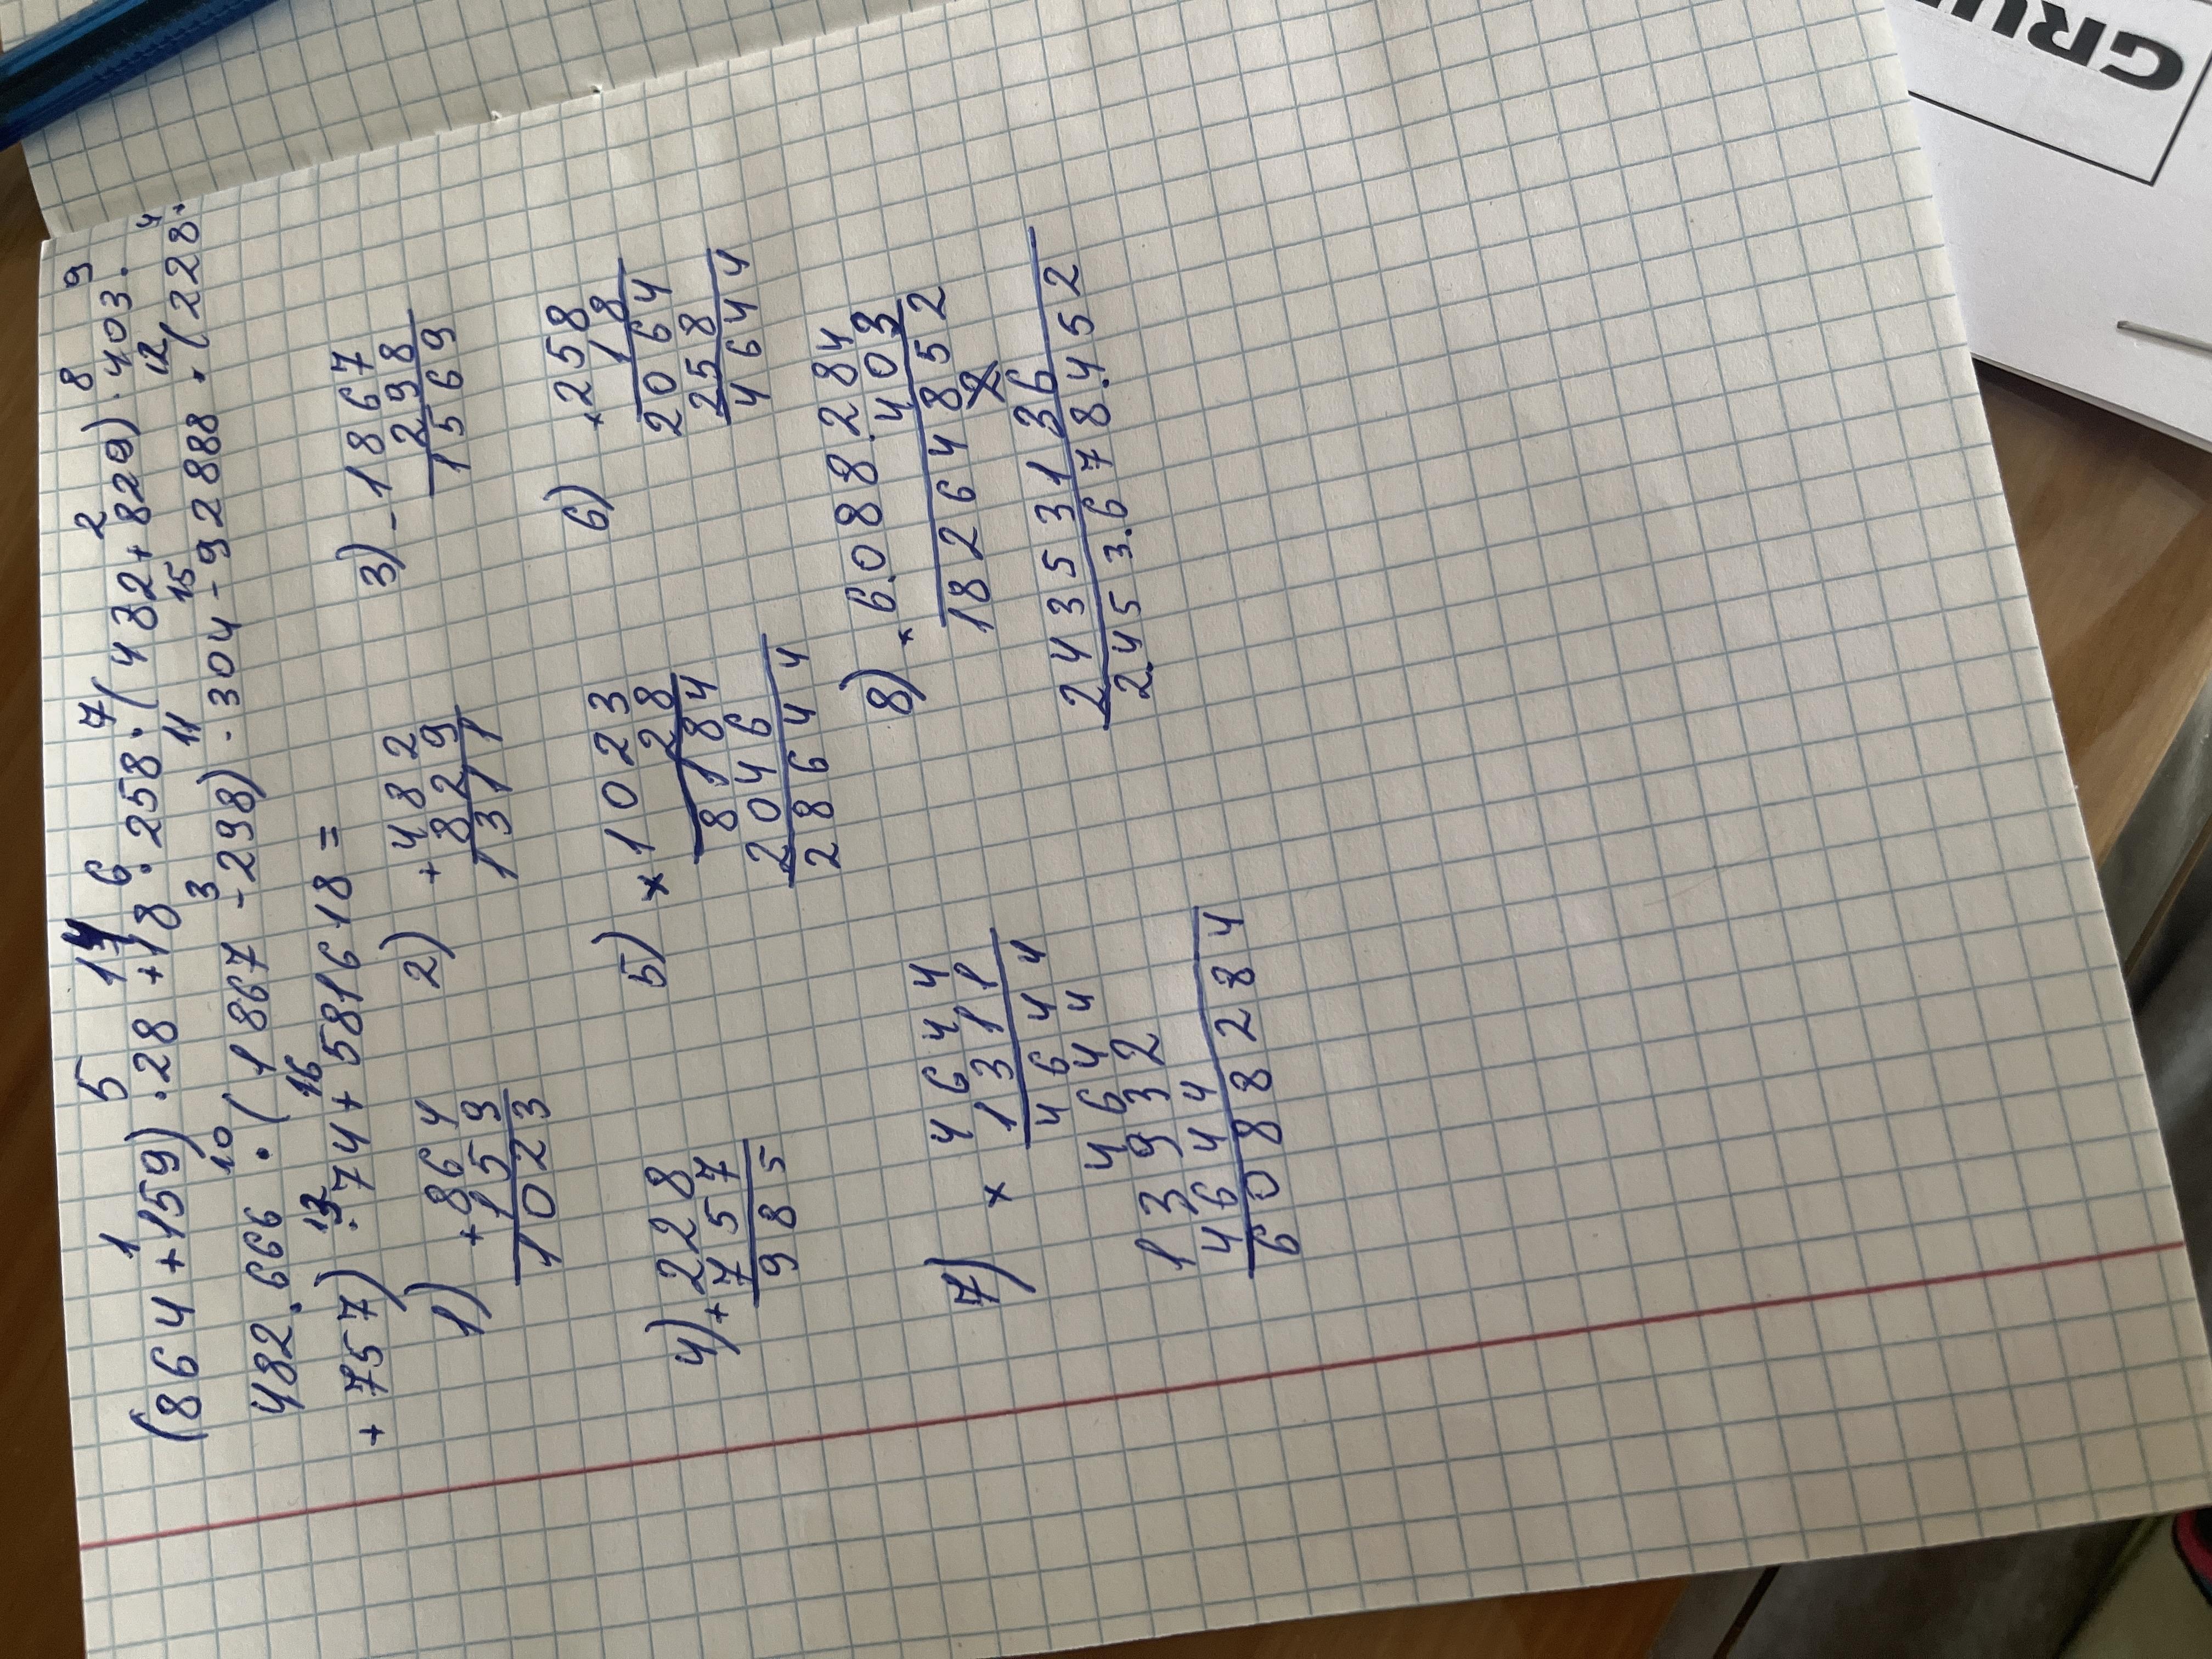 1 5 14 6 7 2 8 9
(864+159)·28+18·258·(482+829)·403·
10 3 11 15 12 4
482.666·(1867-298)·304-92888·(228+
13 16
+757)·74+581618=
1) +864
159
1023
2) +482
829
1311
3) -1867
298
1569
4) +228
757
985
5) ×1023
28
8184
2046
28644
6) ×258
18
2064
258
4644
7) ×4644
1311
4644
4644
13932
4644
6088284
8) ×6.088.284
403
18264852
24353136
2.453.678.452
GRU